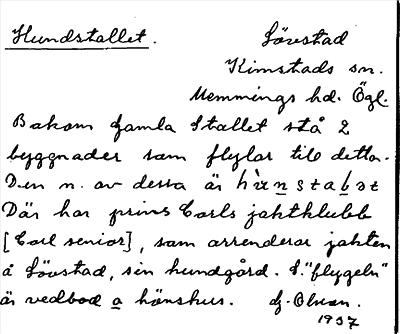 Hundstallet.
Lövstad
Kimstads sn.
Memmings hd. Ögl.
Bakom Gamla Stallet stå 2
byggnader som flylar till detta.
Den n. av dessa är hùnstabət
Där har prins Carls jaktklubb
[Carl senior], som arrenderar jakten
å Lövstad, sin hundgård. S. "flygeln"
är vedbod a hönshus. G. Olson.
1937